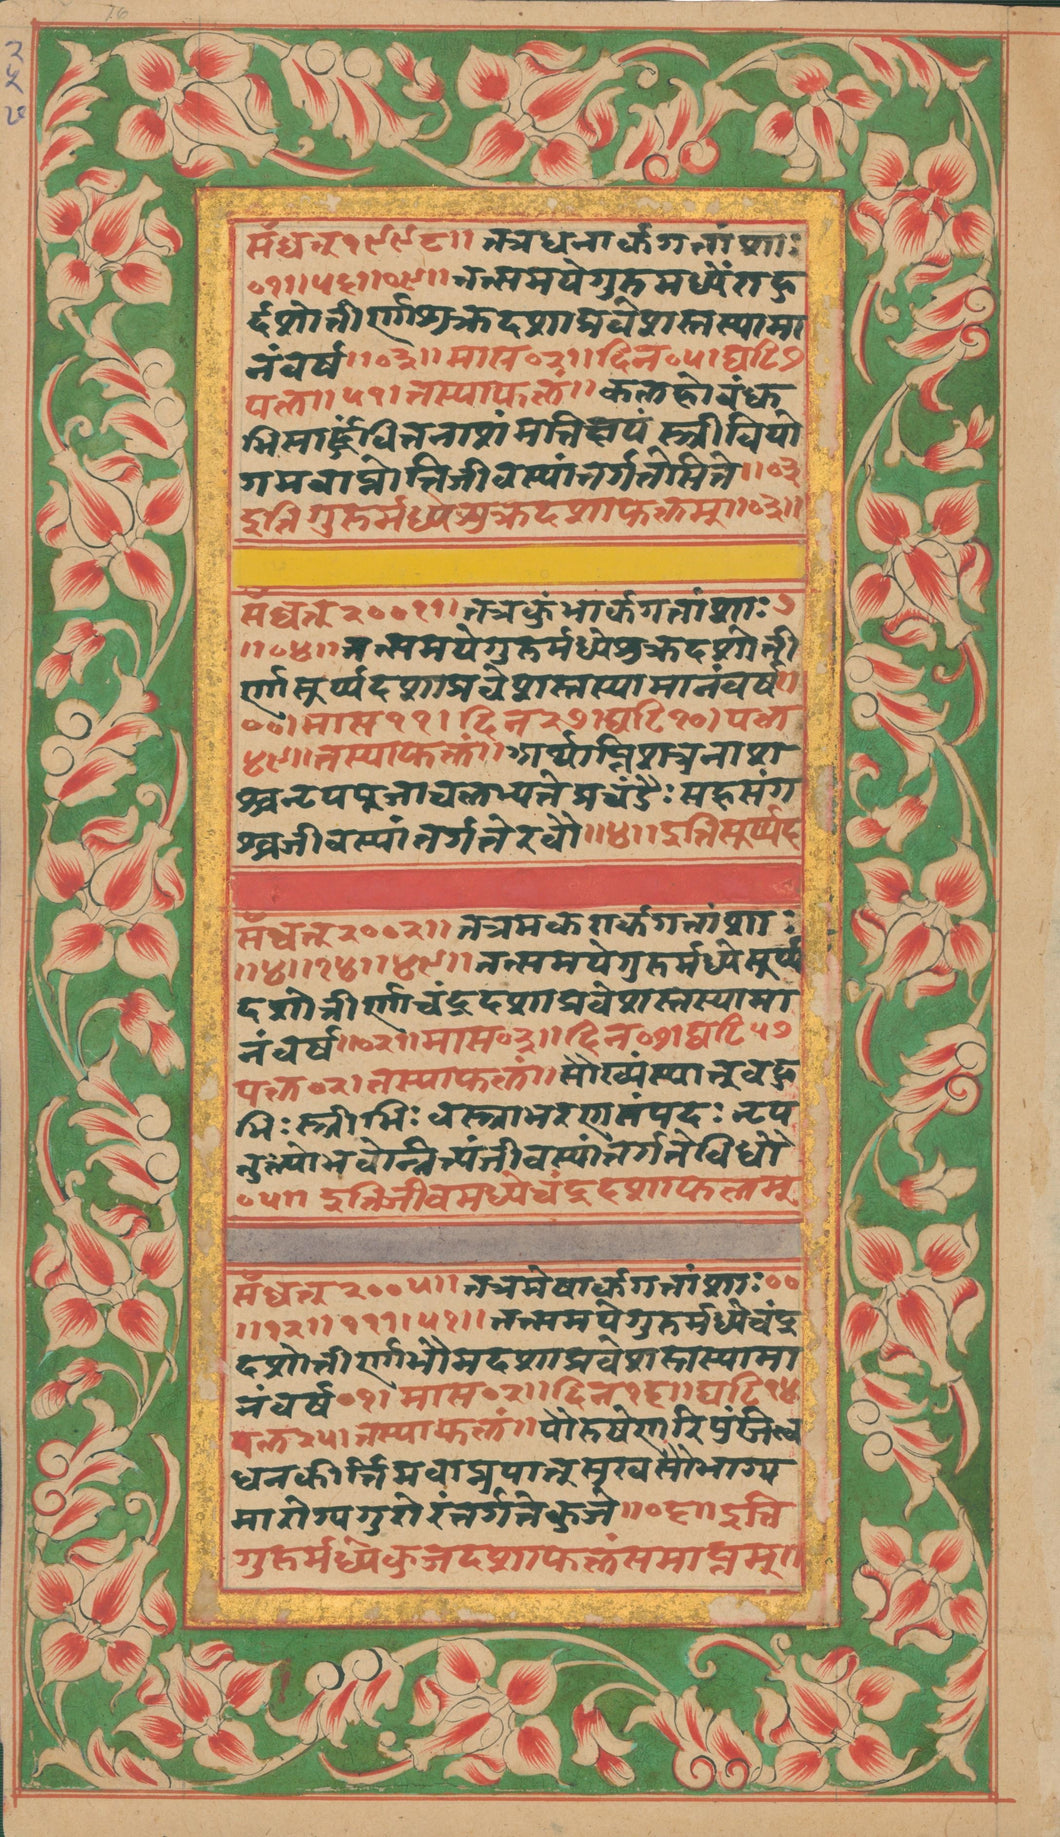 २५७
संवत् १९९८।। तत्रधनार्कगतांशाः
०१।।५६।।०९।। तत्समयेगुरुमध्येराहु
र्दशोत्तीर्णाशुक्रदशाप्रवेशस्तस्यामा
नंवर्ष।।०३।। मास०२।।दिन०५।घटि७
पल।।५१।तस्याफलं।। कलहोवंधु
भिसार्द्धंवित्तनाशं स्त्रीवियो
गमवाप्नोतिजीवस्यांतर्गतेसिते।।०३
इतिगुरुर्मध्येशुक्रदशाफलम्।।०३।।
संवत् २००१।। तत्रकुंभार्कगतांशाः
।।०४।।तत्समयेगुरुर्मध्येशुक्रदशोत्ती
र्णासूर्य्यदशाप्रवेशस्तस्यामानंवर्ष।।
००।मास११।दिन२७।घटि१०।पल
४९।।तस्याफलं।। शत्रुनाश
श्वनृपपूजाचलभ्यते प्रचंडैः सहसंग
श्वजीवस्यांतर्गतेरवौ।।४।।इतिसूर्य्यद
संवत् २००२।। तत्रमकरार्कगतांशाः
।।४।।१४।।४९।।तत्समयेगुरुर्मध्येसूर्य्य
दशोत्तीर्णाचंद्रदशाप्रवेशस्तस्यामा
नंवर्ष।।०२।।मास०३।।दिन०७।घटि५७
पल०२।तस्याफलं।।सौख्यंस्यात्नुवहु
भिः स्त्रीभिः वस्त्राभरणसंपदः नृप
तुल्योभवेन्नित्यंजीवस्यांतर्गतेविधौ
०५।। इतिजीवमध्येचंद्रदशाफलम्
संवत् २००५।। तत्रमेषार्कगतांशाः००
।।१२।।१११।५१।।तत्समयेगुरुर्मध्येचंद्र
दशोत्तीर्णाभौमदशाप्रवेशस्तस्यामा
नंवर्ष०१।मास०२।।दिन१६।।घटि१४
पल२५।तस्याफलं।।पौरुषेणरिपुंजित्व
धनकीर्त्तिमवाप्नुयात् सूखसौभाग्य
मारोग्यगुरोरंतर्गतेकुजे।।०६।।इति
गुरुर्मध्येकुजदशाफलंसमाप्तम्।।